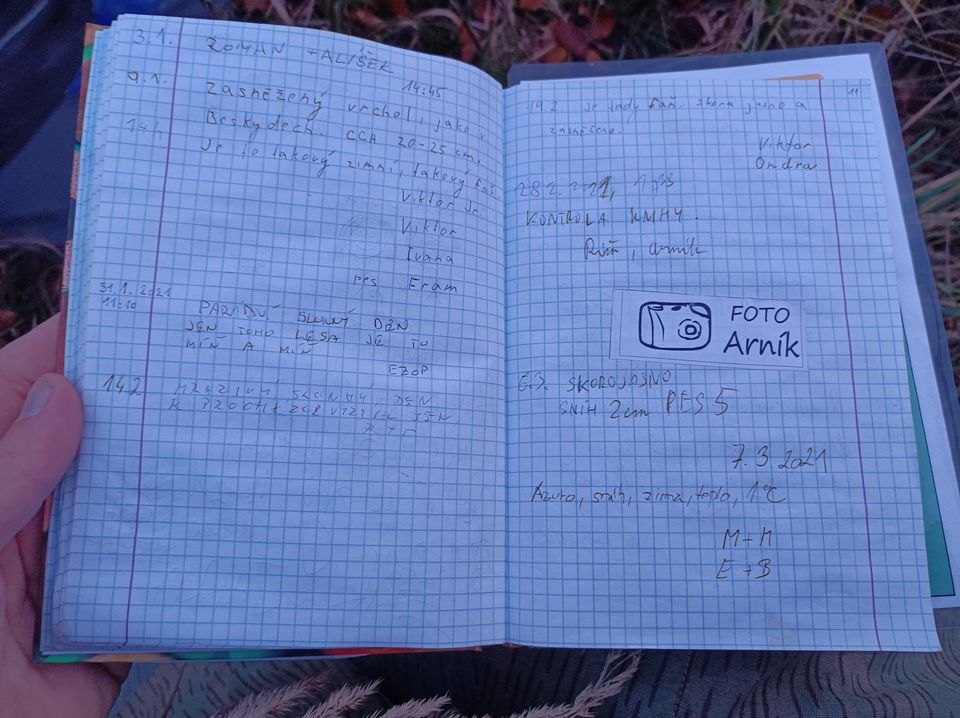 3.1. ROMAN + ALÍŠEK
14:45
9.1. Zasněžený vrchol, jako v
14h Beskydech. CCA 20-25 cm.
Je to takový zimní, takový
Viktor Jr.
Viktor
Ivana
pes Eram
31.1.2021
11:10
PARÁDNÍ SLUNNÝ DEN
JEN TOHO LESA JE TU
MÍŇ A MÍŇ
EZOP
14.2 MRAZIVÝ SLUNNÝ DEN
11
19.2 Je tady fajn. Skoro jasno a
zasněženo.
Viktor
Ondra
28.2.2021,
KONTROLA KNIHY.
Arník
FOTO
Arník
6.3. SKOROJASNO
SNÍH 2cm PES 5
7.3.2021
Azuro, sníh, zima, teplo, 1°C
M+M
E+B